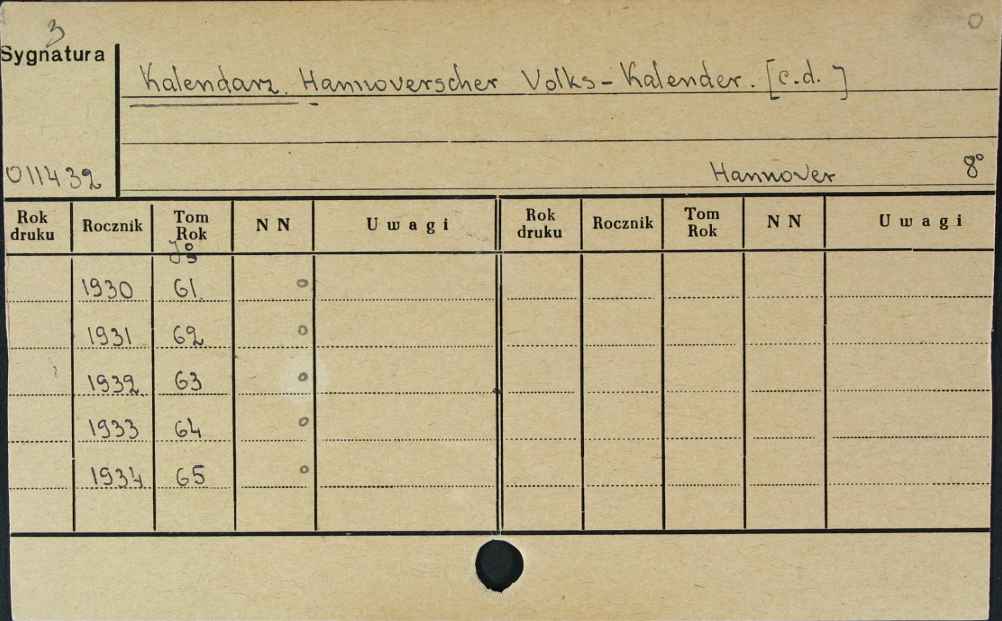 3
Sygnatura
Kalendarz. Hannoverscher Volks-Kalender. [c.d.]
011432 Hannover 8°
Rok druku Rocznik Tom Rok NN Uwagi Rok druku Rocznik Tom Rok NN Uwagi
Jg
1930 61
1931 62
1932 63
1933 64
1934 65